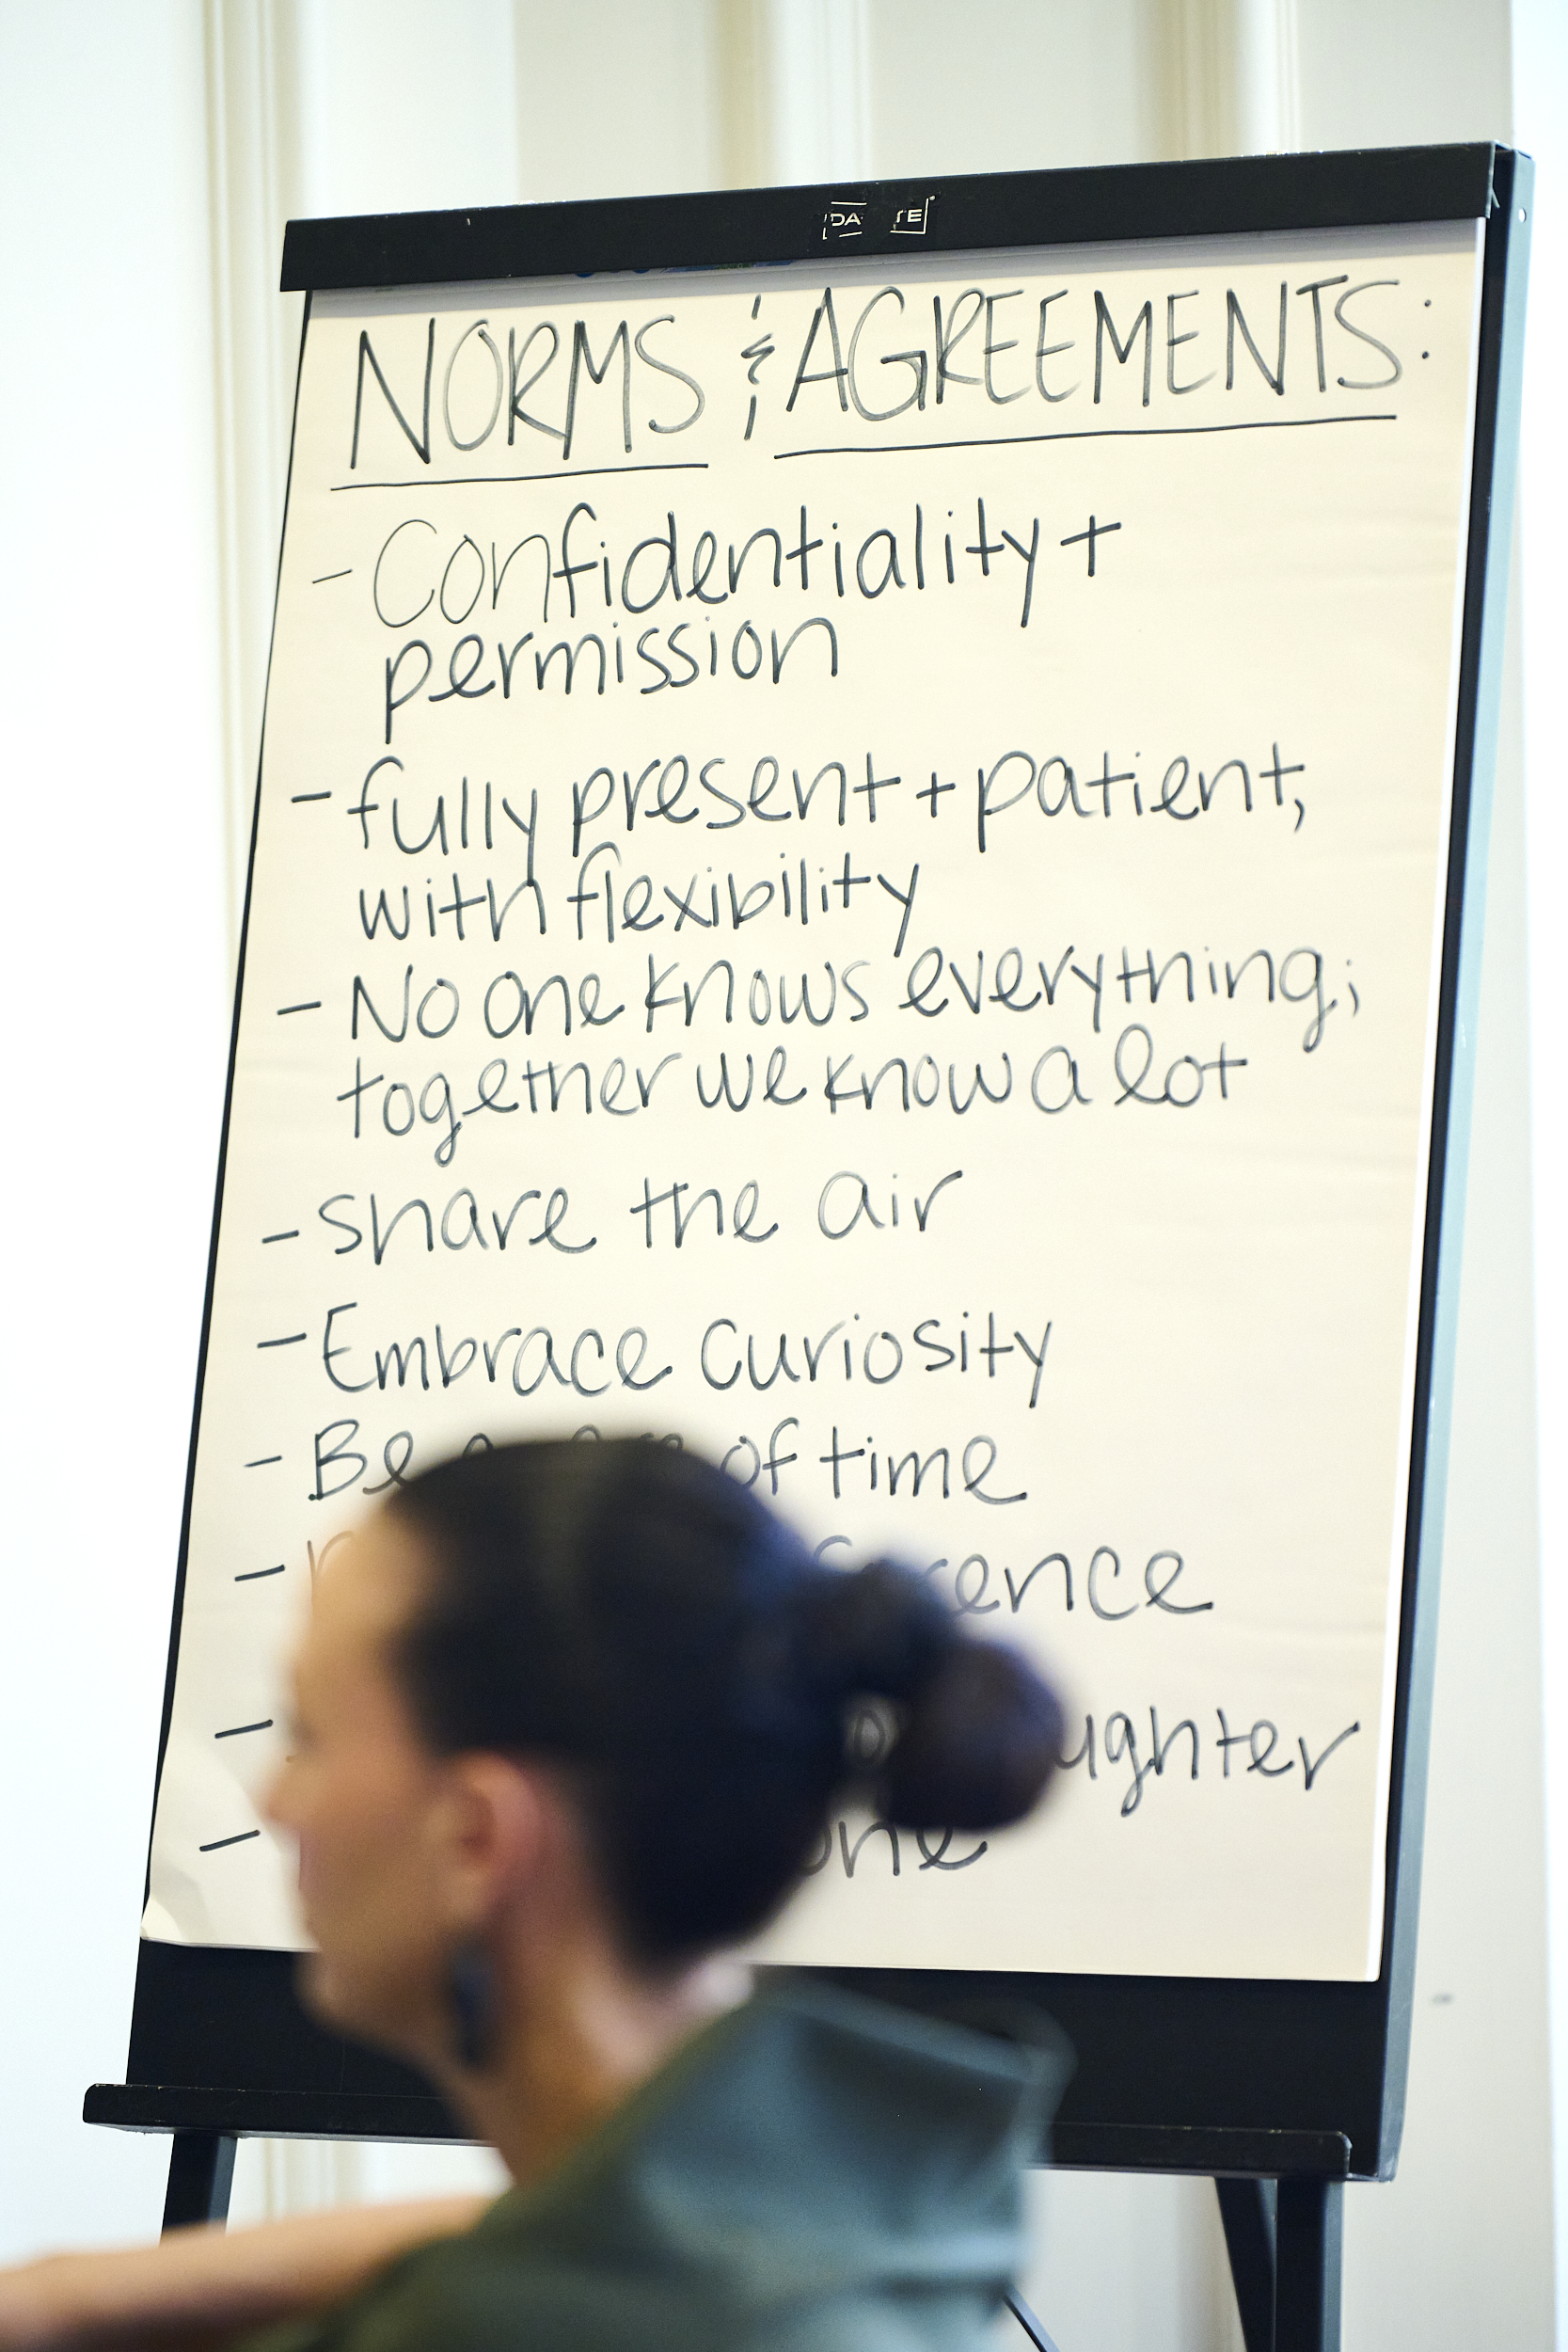 NORMS & AGREEMENTS:
- Confidentiality +
permission
- fully present + patient,
with flexibility
- No one knows everything;
together we know a lot
- share the air
- Embrace curiosity
- Be aware of time
-
-
-